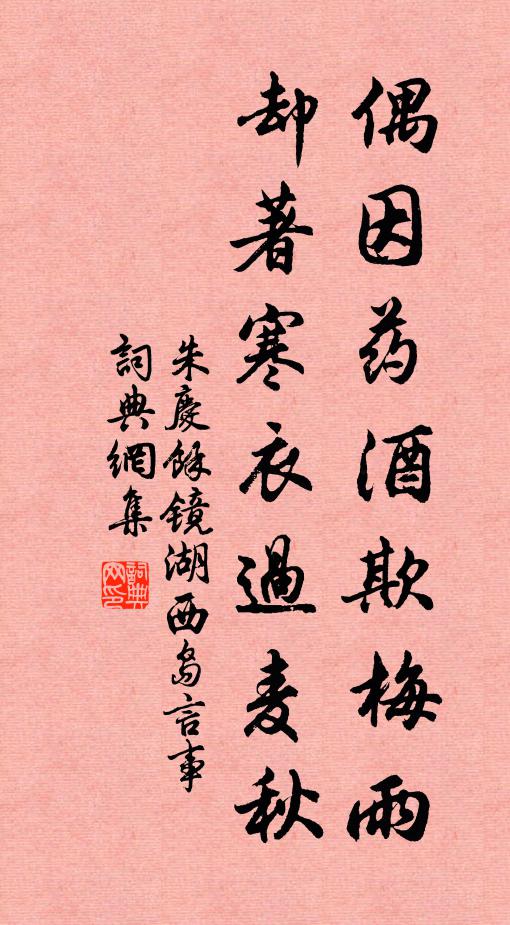 偶因药酒欺梅雨
却著寒衣過麦秋
朱慶餘镜湖西岛言事
詞典網集
詞典网印